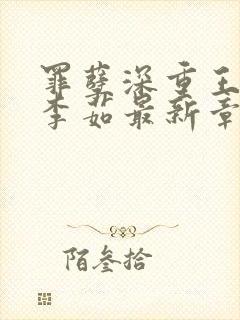 罪孽深重王
李茹最新章
陌叁拾